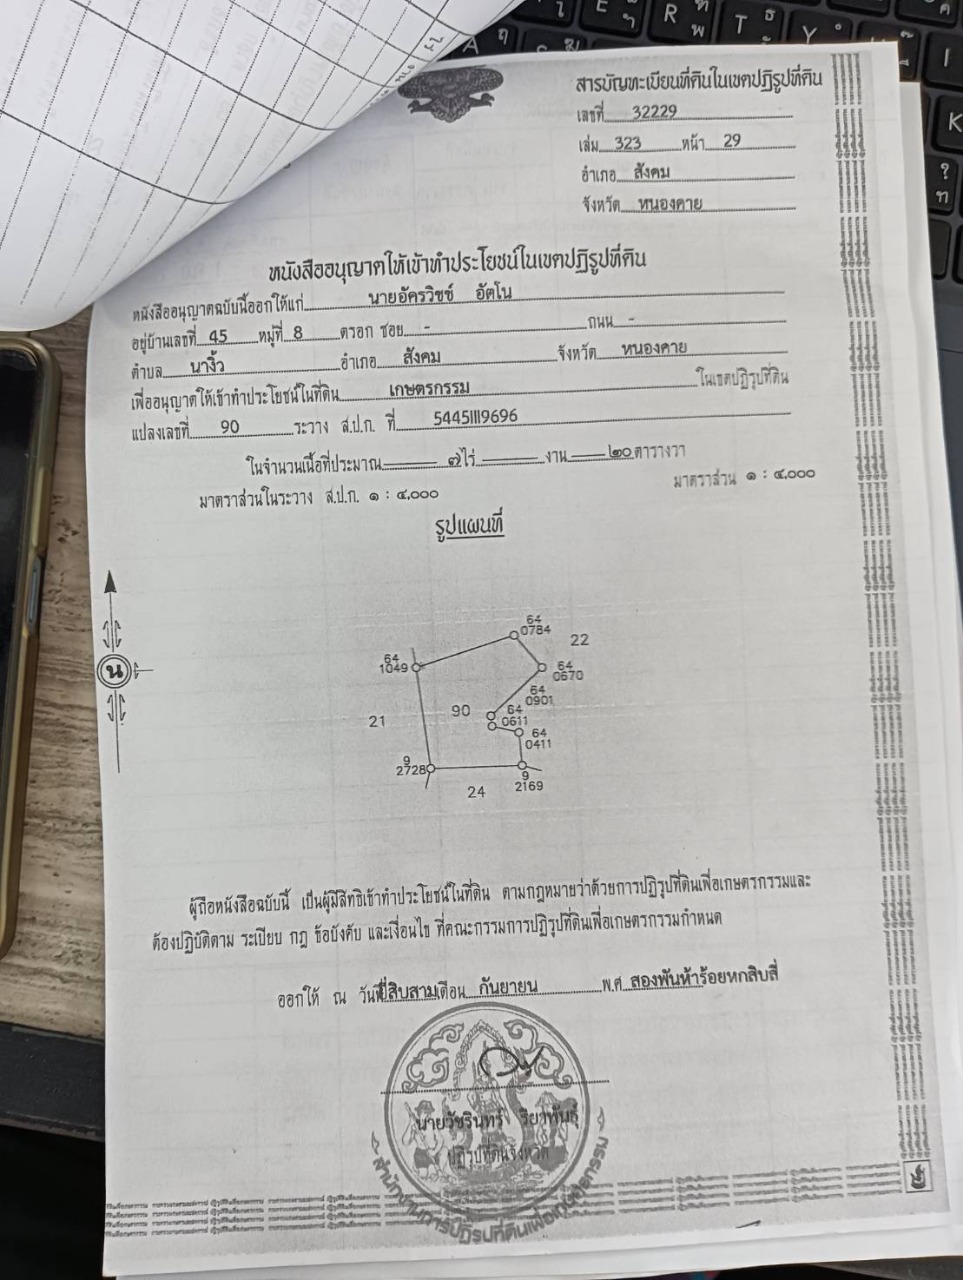 สารบัญทะเบียนที่ดินในเขตปฏิรูปที่ดิน
เลขที่ 32229
เล่ม 323 หน้า 29
อำเภอ สังคม
จังหวัด หนองคาย
หนังสืออนุญาตให้เข้าทำประโยชน์ในเขตปฏิรูปที่ดิน
หนังสืออนุญาตฉบับนี้ออกให้แก่ นายอัครวิชช์ อัตโน
อยู่บ้านเลขที่ 45 หมู่ที่ 8 ตรอก ซอย - ถนน -
ตำบล นางิ้ว อำเภอ สังคม จังหวัด หนองคาย
เพื่ออนุญาตให้เข้าทำประโยชน์ในที่ดิน เกษตรกรรม ในเขตปฏิรูปที่ดิน
แปลงเลขที่ 90 ระวาง ส.ป.ก. ที่ 5445III9696
ในจำนวนเนื้อที่ประมาณ ๗ ไร่ งาน ๒๐ ตารางวา
มาตราส่วนในระวาง ส.ป.ก. ๑ : ๔,๐๐๐ มาตราส่วน ๑ : ๔,๐๐๐
รูปแผนที่
น
64
0784
22
64
1049
64
0670
64
0901
90
64
0611
21
64
0411
9
2728
9
2169
24
ผู้ถือหนังสือฉบับนี้ เป็นผู้มีสิทธิเข้าทำประโยชน์ในที่ดิน ตามกฎหมายว่าด้วยการปฏิรูปที่ดินเพื่อเกษตรกรรมและ
ต้องปฏิบัติตาม ระเบียบ กฎ ข้อบังคับ และเงื่อนไข ที่คณะกรรมการปฏิรูปที่ดินเพื่อเกษตรกรรมกำหนด
ออกให้ ณ วันที่ ยี่สิบสาม เดือน กันยายน พ.ศ. สองพันห้าร้อยหกสิบสี่
นายวัชรินทร์ ริยาพันธุ์
ปฏิรูปที่ดินจังหวัด
สำนักงานการปฏิรูปที่ดินเพื่อเกษตรกรรม